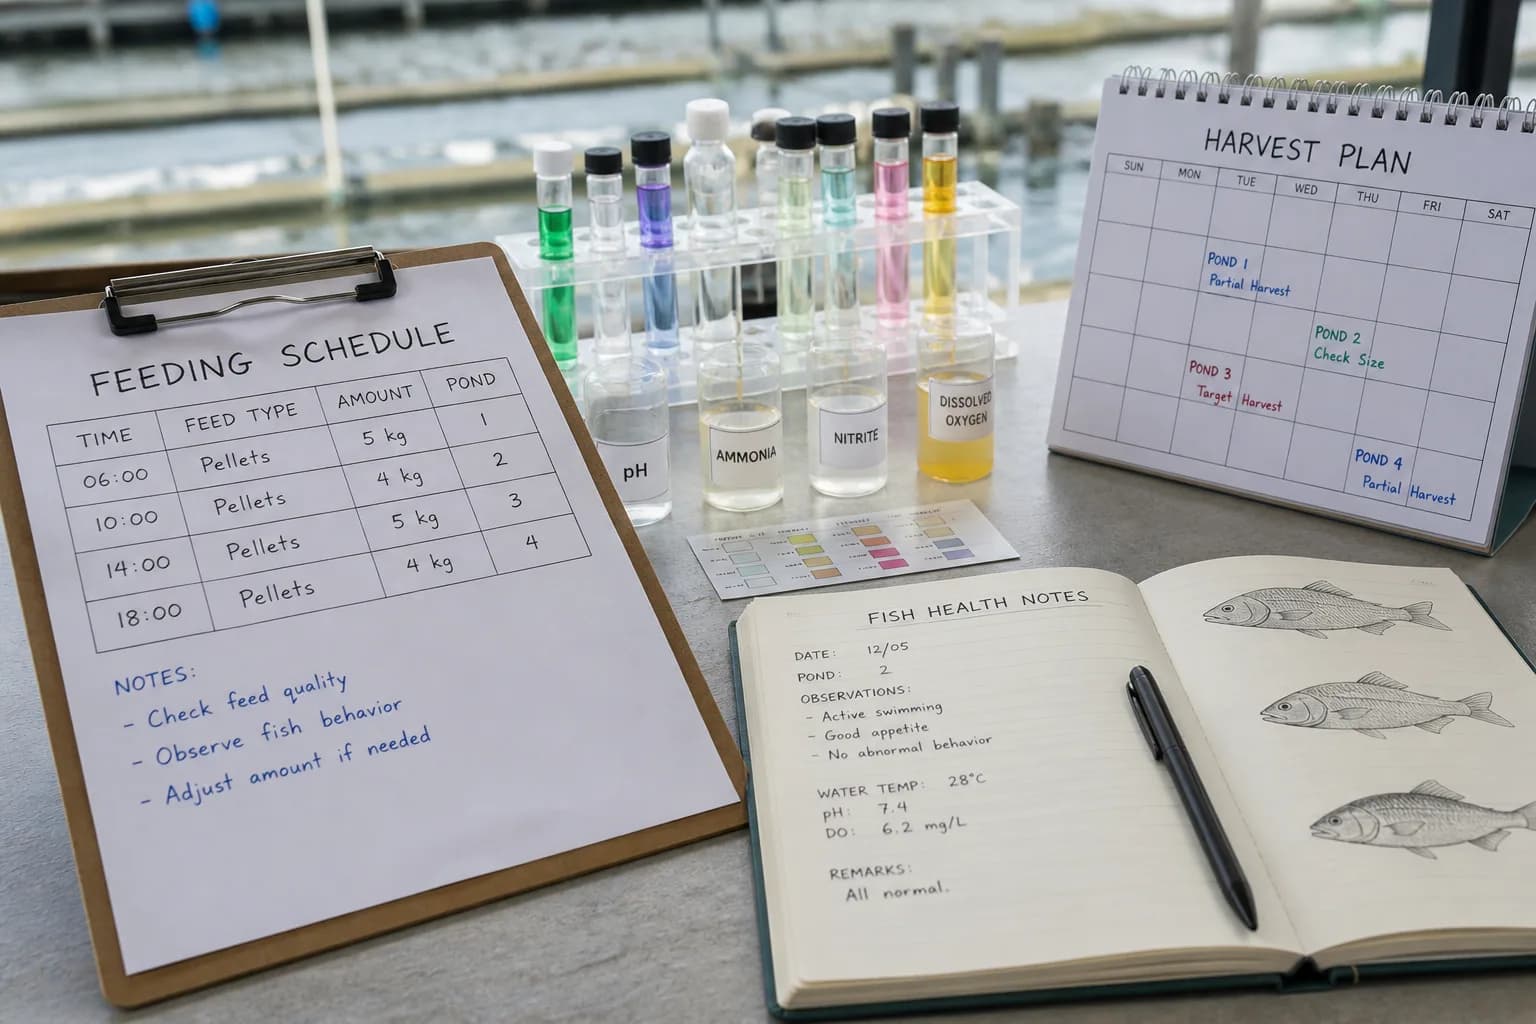 FEEDING SCHEDULE
TIME FEED TYPE AMOUNT POND
06:00 Pellets 5 kg 1
10:00 Pellets 4 kg 2
14:00 Pellets 5 kg 3
18:00 Pellets 4 kg 4
NOTES:
- Check feed quality
- Observe fish behavior
- Adjust amount if needed
pH
AMMONIA
NITRITE
DISSOLVED
OXYGEN
HARVEST PLAN
SUN MON TUE WED THU FRI SAT
POND 1
Partial Harvest
POND 2
Check Size
POND 3
Target Harvest
POND 4
Partial Harvest
FISH HEALTH NOTES
DATE: 12/05
POND: 2
OBSERVATIONS:
- Active swimming
- Good appetite
- No abnormal behavior
WATER TEMP: 28°C
pH: 7.4
DO: 6.2 mg/L
REMARKS:
All normal.